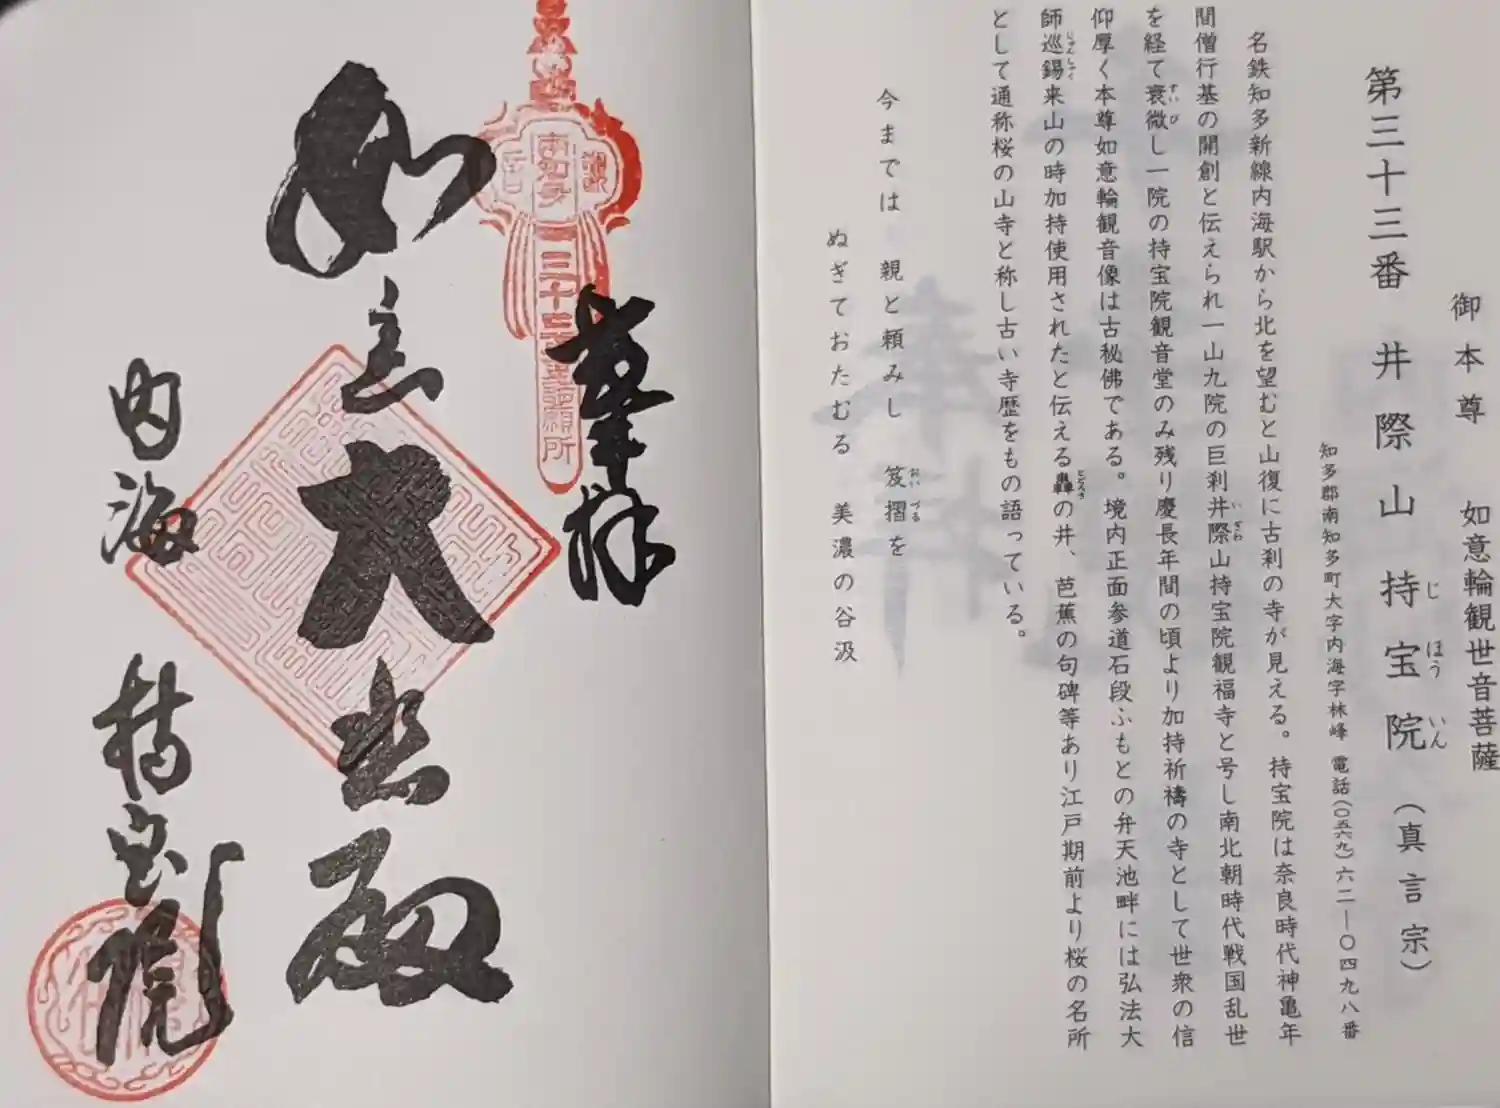 御本尊 如意輪観世音菩薩
第三十三番 井際山 持宝院（真言宗）
じ ほう いん
知多郡南知多町大字内海字林峰 電話(〇五六九)六二―〇四九八番
名鉄知多新線内海駅から北を望むと山復に古刹の寺が見える。持宝院は奈良時代神亀年
間僧行基の開創と伝えられ一山九院の巨刹井際山持宝院観福寺と号し南北朝時代戦国乱世
いぎわ
を経て衰微し一院の持宝院観音堂のみ残り慶長年間の頃より加持祈禱の寺として世衆の信
すいび
仰厚く本尊如意輪観音像は古秘佛である。境内正面参道石段ふもとの弁天池畔には弘法大
師巡錫来山の時加持使用されたと伝える轟の井、芭蕉の句碑等あり江戸期前より桜の名所
じゅんしゃく
とどろき
として通称桜の山寺と称し古い寺歴をもの語っている。
今までは 親と頼みし 笈摺を
おいづる
ぬぎておたむる 美濃の谷汲
奉拝
如意
大悲殿
内海 持宝院